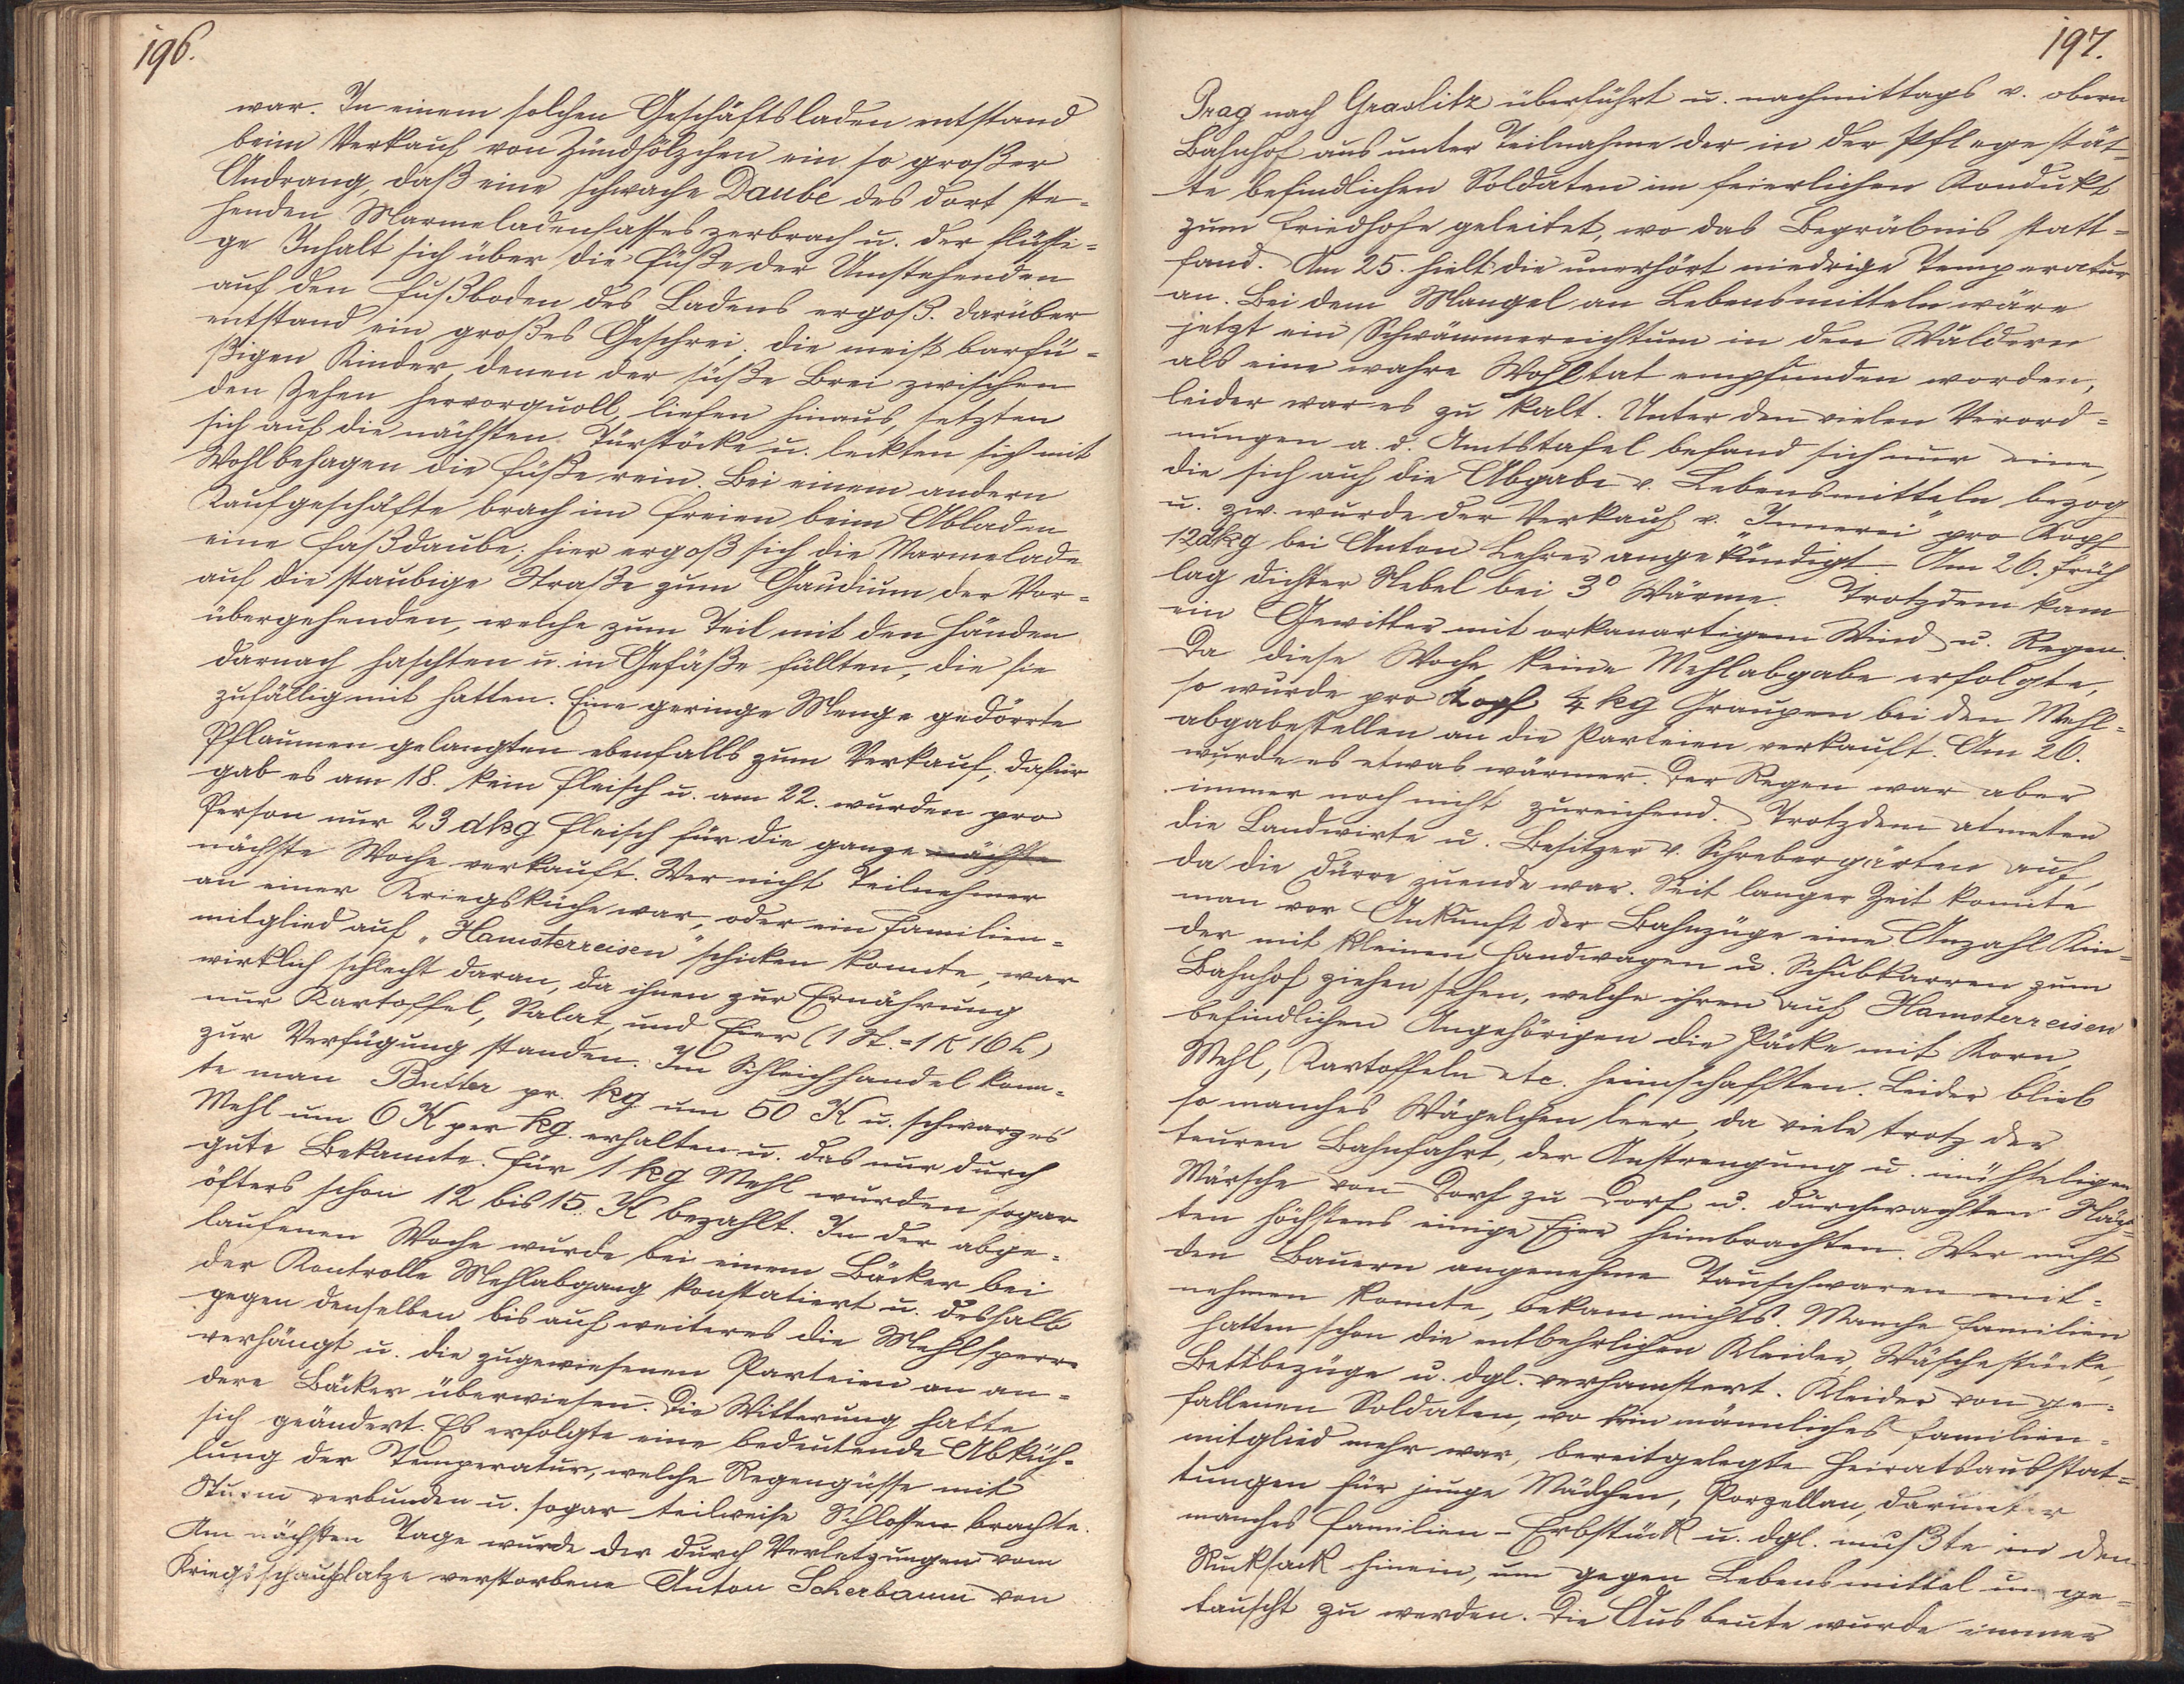 196.
war. In einem solchen Geschäftsladen entstand
beim Verkauf von Zündhölzchen ein so großer
Andrang, daß eine schwache Daube des dort ste-
henden Marmeladenfasses zerbrach u. der flüssi-
ge Inhalt sich über die Füße der Umstehenden
auf den Fußboden des Ladens ergoß. Darüber
entstand ein großes Geschrei. Die meist barfü-
ßigen Kinder, denen der süße Brei zwischen
den Zehen hervorquoll, liefen hinaus, setzten
sich auf die nächsten Türstöcke u. leckten sich mit
Wohlbehagen die Füße rein. Bei einem andern
Kaufgeschäfte brach im Freien beim Abladen
eine Faßdaube; hier ergoß sich die Marmelade
auf die staubige Straße zum Gaudium der Vor-
übergehenden, welche zum Teil mit den Händen
darnach haschten u. in Gefäße füllten, die sie
zufällig mit hatten. Eine geringe Menge gedörrte
Pflaumen gelangten ebenfalls zum Verkauf; dafür
gab es am 18. kein Fleisch u. am 22. wurden pro
Person nur 23 dkg Fleisch für die ganze nächste
nächste Woche verkauft. Wer nicht Teilnehmer
an einer Kriegsküche war, oder ein Familien-
mitglied auf "Hamsterreisen" schicken konnte, war
wirklich schlecht daran, da ihnen zur Ernährung
nur Kartoffel, Salat, und Eier (1 St. = 1 K 16 h)
zur Verfügung standen. Im Schleichhandel konn-
te man Butter pr. kg um 50 K u. schwarzes
Mehl um 6 K per kg. erhalten u. das nur durch
gute Bekannte. Für 1 kg Mehl wurden sogar
öfters schon 12 bis 15 K bezahlt. In der abge-
laufenen Woche wurde bei einem Bäcker bei
der Kontrolle Mehlabgang konstatiert u. deshalb
gegen denselben bis auf weiteres die Mehlsperre
verhängt u. die zugewiesenen Parteien an an-
dere Bäcker überwiesen. Die Witterung hatte
sich geändert. Es erfolgte eine bedeutende Abküh-
lung der Temperatur, welche Regengüsse mit
Sturm verbunden u. sogar teilweise Schlossen brachte.
Am nächsten Tage wurde der durch Verletzungen vom
Kriegsschauplatze verstorbene Anton Scherbaum von
197.
Prag nach Graslitz überführt u. nachmittags v. obern
Bahnhof aus unter Teilnahme der in der Pflegestät-
te befindlichen Soldaten im feierlichen Kondukt
zum Friedhofe geleitet, wo das Begräbnis statt-
fand. Am 25. hielt die unerhört niedrige Temperatur
an. Bei dem Mangel an Lebensmitteln wäre
jetzt ein Schwämmereichtum in den Wäldern
als eine wahre Wohltat empfunden worden,
leider war es zu kalt. Unter den vielen Verord-
nungen a. d. Amtstafel befand sich nur eine,
die sich auf die Abgabe v. Lebensmitteln bezog
u. zw. wurde der Verkauf v. "Innerei" pro Kopf
12 dkg bei Anton Lehrer angekündigt. Am 26. früh
lag dichter Nebel bei 3° Wärme. Trotzdem kam
ein Gewitter mit orkanartigem Wind u. Regen.
Da diese Woche keine Mehlabgabe erfolgte,
so wurde pro Kopf ¼ kg Graupen bei den Mehl-
abgabestellen an die Parteien verkauft. Am 26.
wurde es etwas wärmer. Der Regen war aber
immer noch nicht zureichend. Trotzdem atmeten
die Landwirte u. Besitzer v. Schrebergärten auf,
da die Dürre zuende war. Seit langer Zeit konnte
man vor Ankunft der Bahnzüge eine Anzahl Kin-
der mit kleinen Handwagen u. Schubkarren zum
Bahnhof ziehen sehen, welche ihren auf Hamsterreisen
befindlichen Angehörigen die Säcke mit Korn,
Mehl, Kartoffeln etc. heimschafften. Leider blieb
so manches Wägelchen leer, da viele trotz der
teuren Bahnfahrt, der Anstrengung u. mühseligen
Märsche von Dorf zu Dorf u. durchwachten Näch-
ten höchstens einige Eier heimbrachten. Wer nicht
den Bauern angenehme Tauschwaren mit-
nehmen konnte, bekam nichts. Manche Familien
hatten schon die entbehrlichen Kleider, Wäschestücke,
Bettbezüge u. dgl. verhamstert. Kleider von ge-
fallenen Soldaten, wo kein männliches Familien-
mitglied mehr war, bereitgelegte Heiratsausstat-
tungen für junge Mädchen, Porzellan, darunter
manches Familien-Erbstück u. dgl. mußte in den
Rucksack hinein, um gegen Lebensmittel um ge-
tauscht zu werden. Die Ausbeute wurde immer